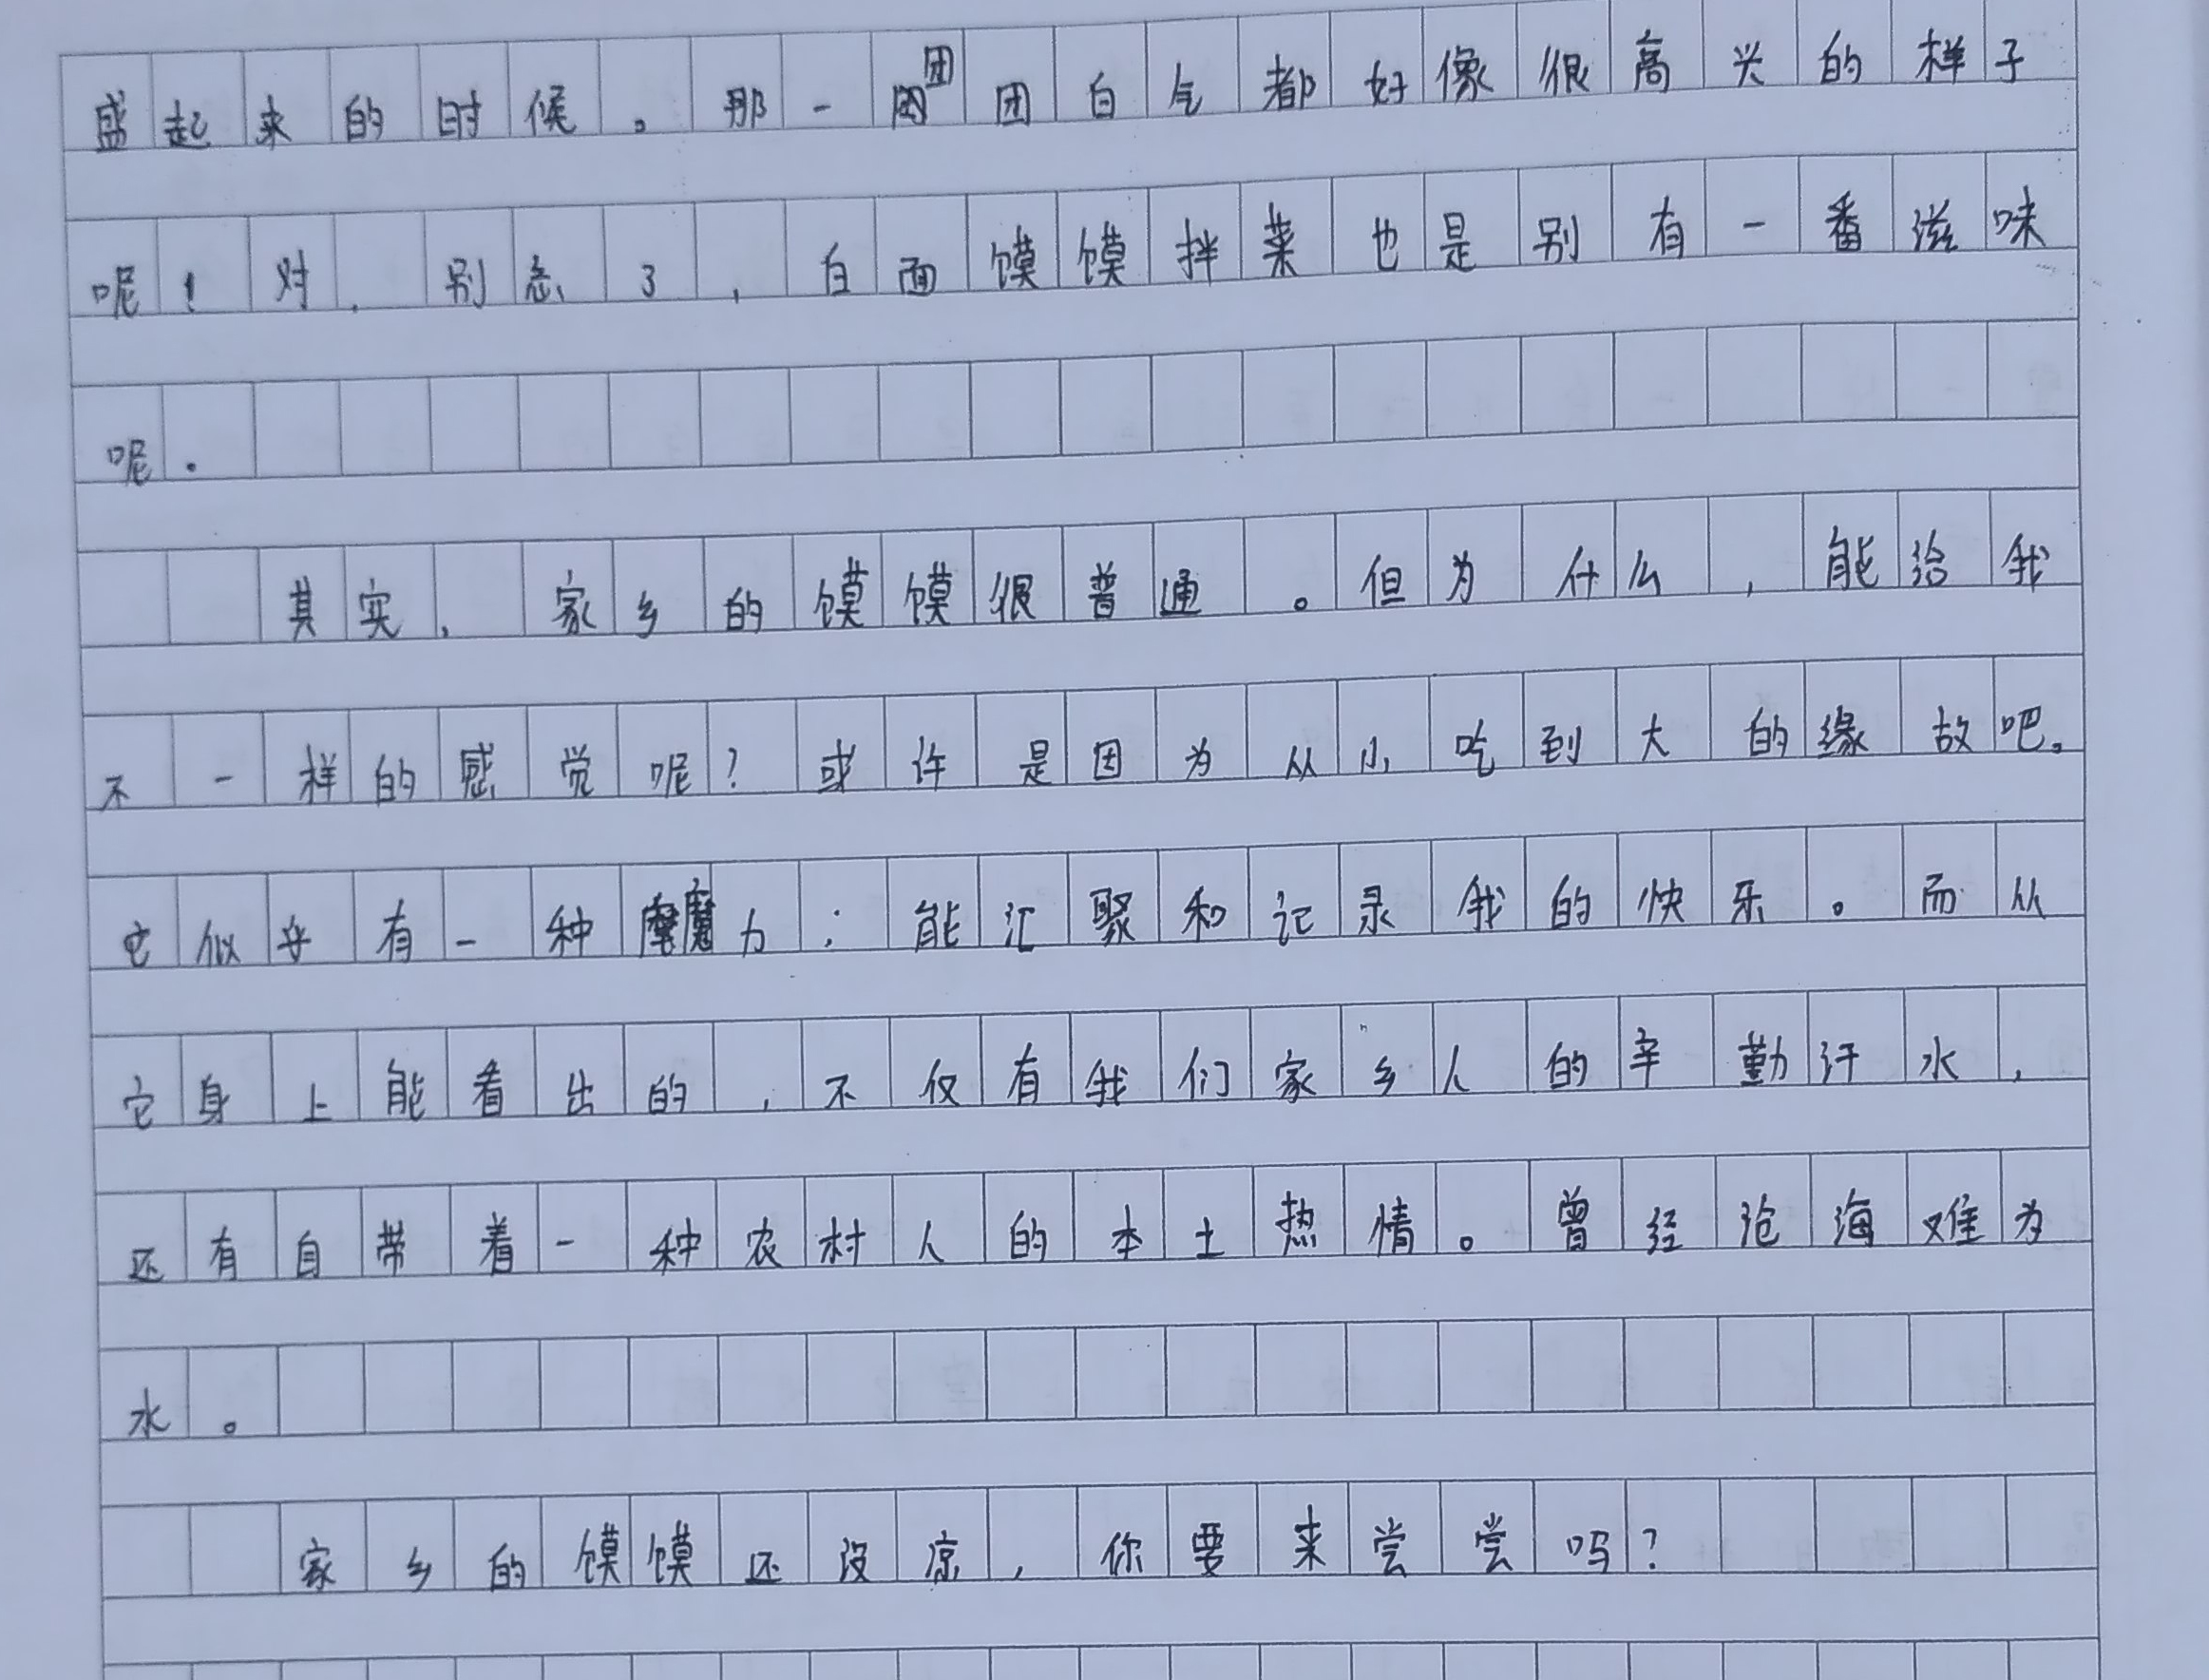 盛起来的时候。那一团团白气都好像很高兴的样子
呢！对，别忘了，白面馍馍拌菜也是别有一番滋味
呢。
其实，家乡的馍馍很普通。但为什么，能给我
不一样的感觉呢？或许是因为从小吃到大的缘故吧。
它似乎有一种魔力：能汇聚和记录我的快乐。而从
它身上能看出的，不仅有我们家乡人的辛勤汗水，
还有自带着一种农村人的本土热情。曾经沧海难为
水。
家乡的馍馍还没凉，你要来尝尝吗？